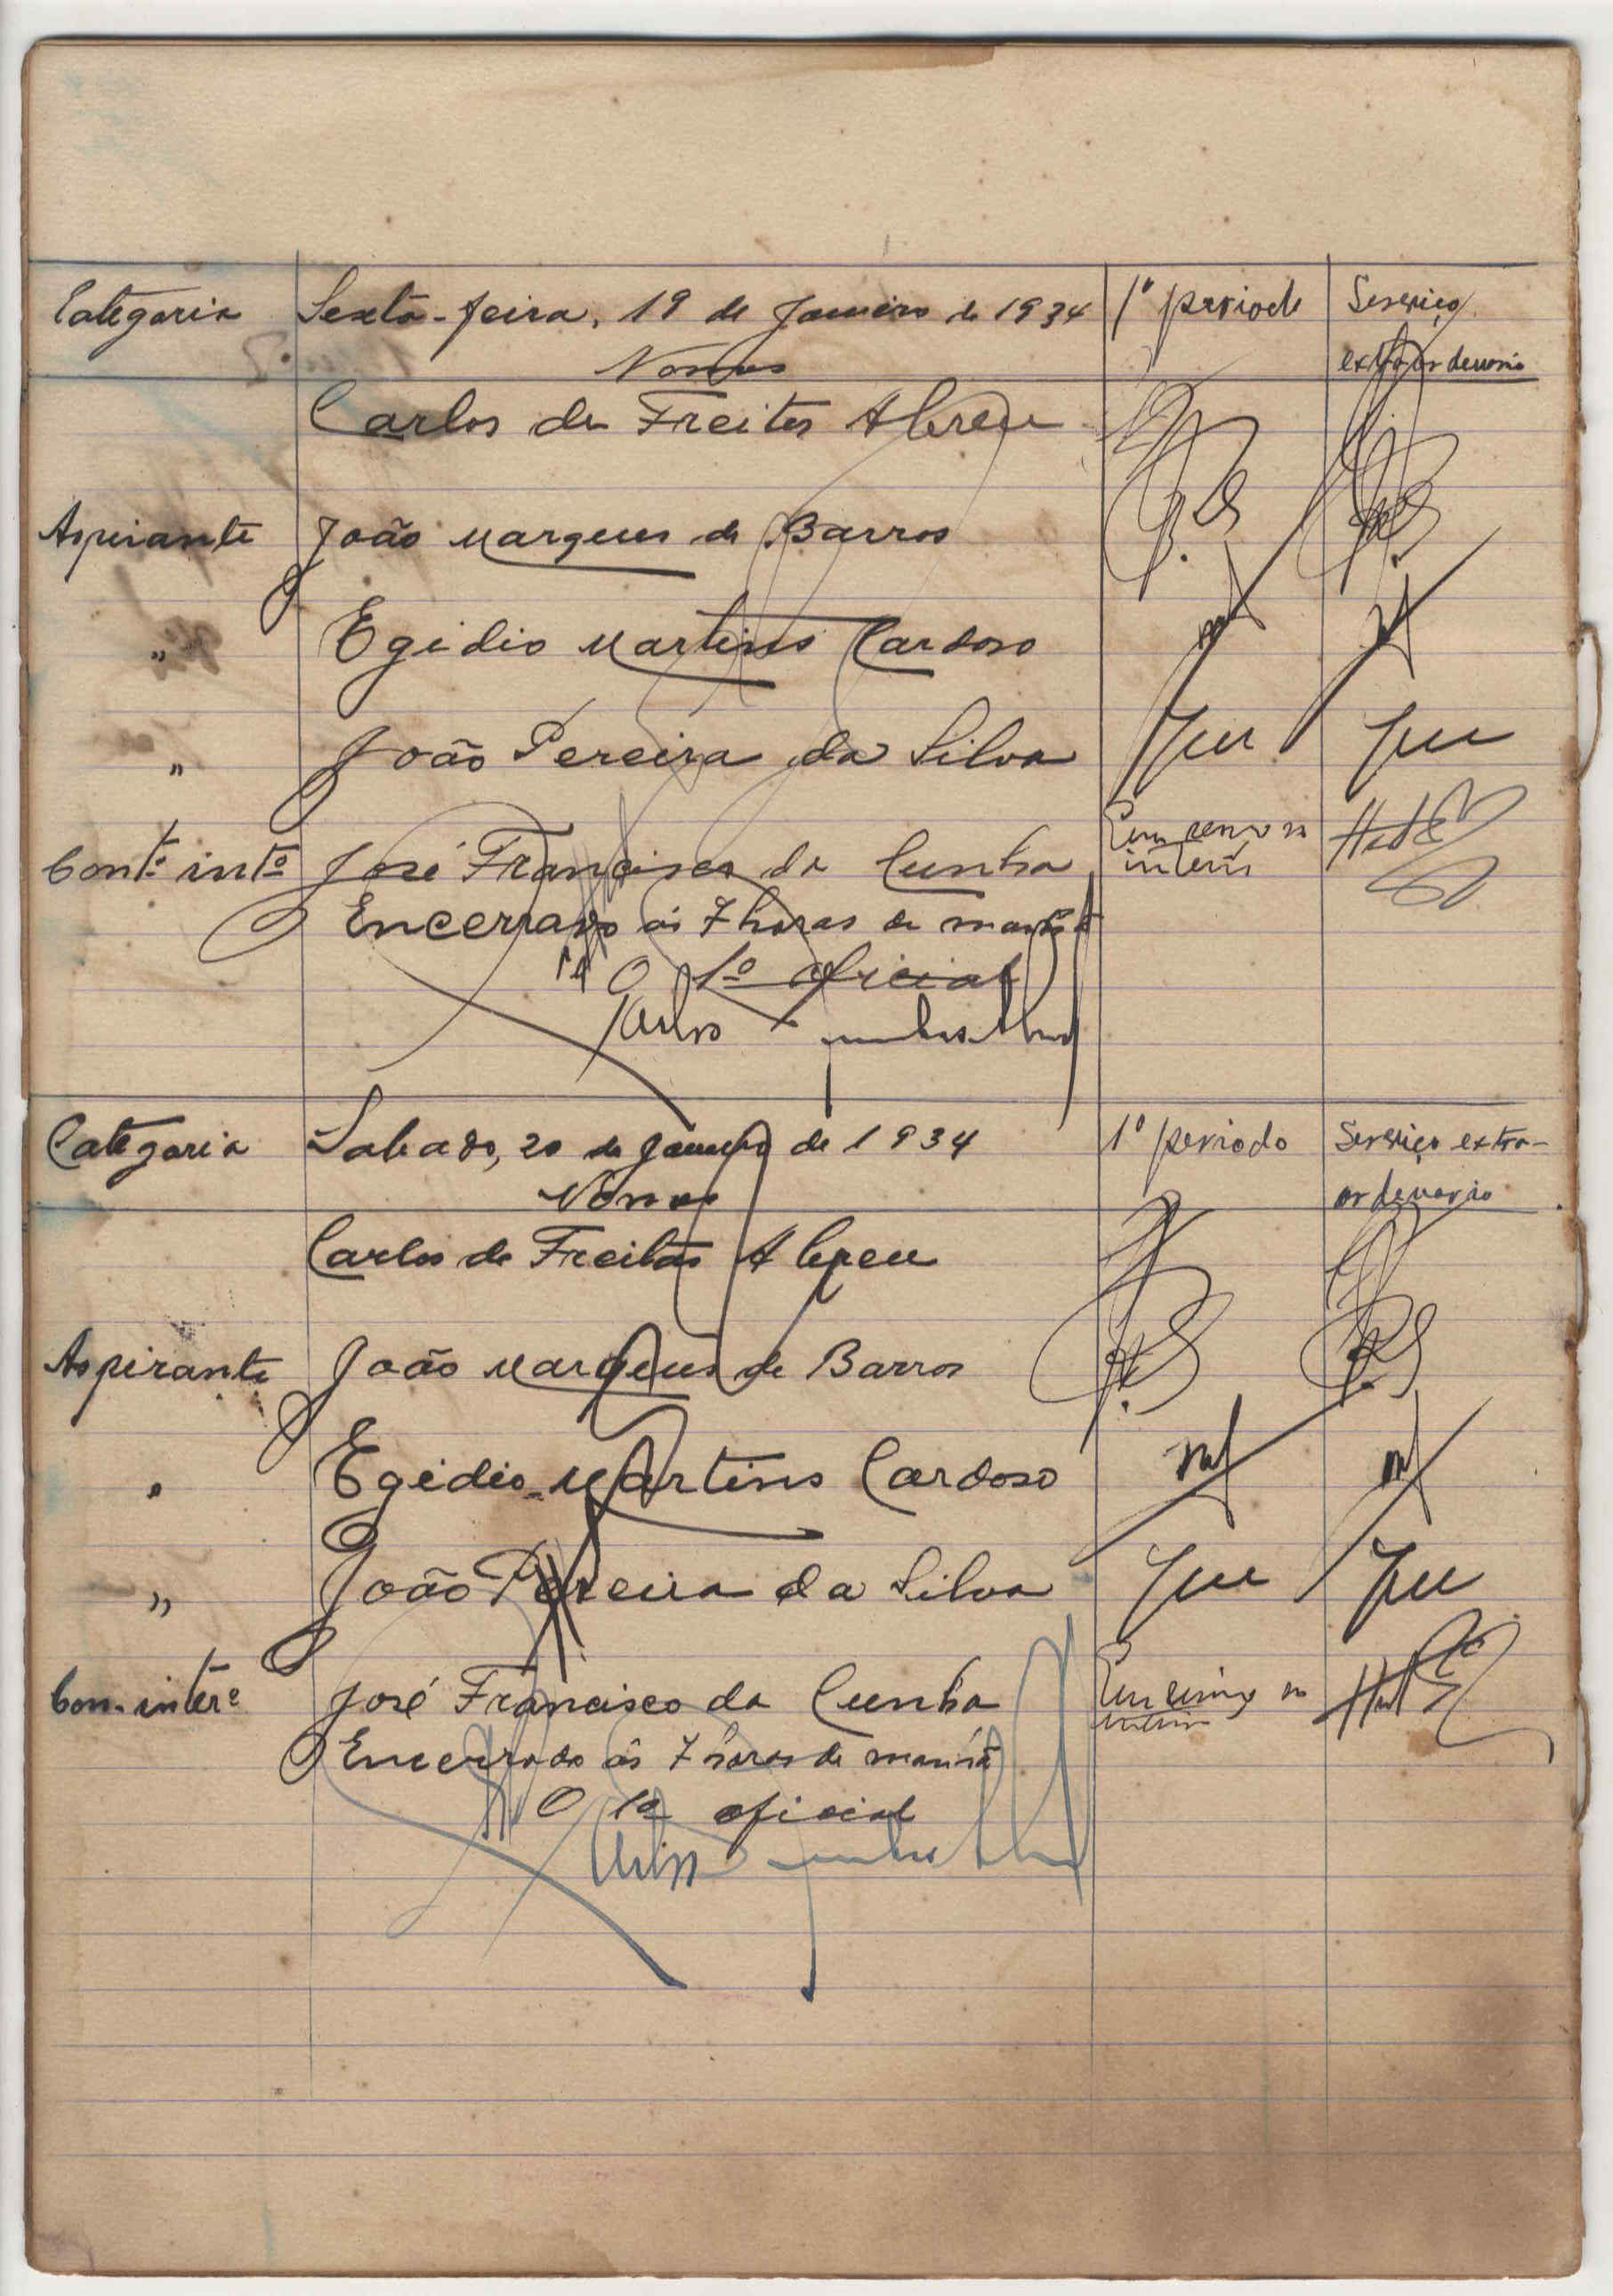 Categoria Sexta-feira, 19 de Janeiro de 1934 1º periodo Serviço
Nomes extraordenario
Carlos de Freitas Abreu
Aspirante João Marques de Barros
" Egidio Martins Cardoso
" João Pereira da Silva
Contº intº José Francisco da Cunha
Encerrado ás 7 horas da manhã
O 1º oficial
Carlos
Categoria Sabado, 20 de Janeiro de 1934 1º periodo Serviço extra-
Nomes ordenario
Carlos de Freitas Abreu
Aspirante João Marques de Barros
" Egidio Martins Cardoso
" João Pereira da Silva
Con. interº José Francisco da Cunha
Encerrado ás 7 horas da manhã
O 1º oficial
Carlos